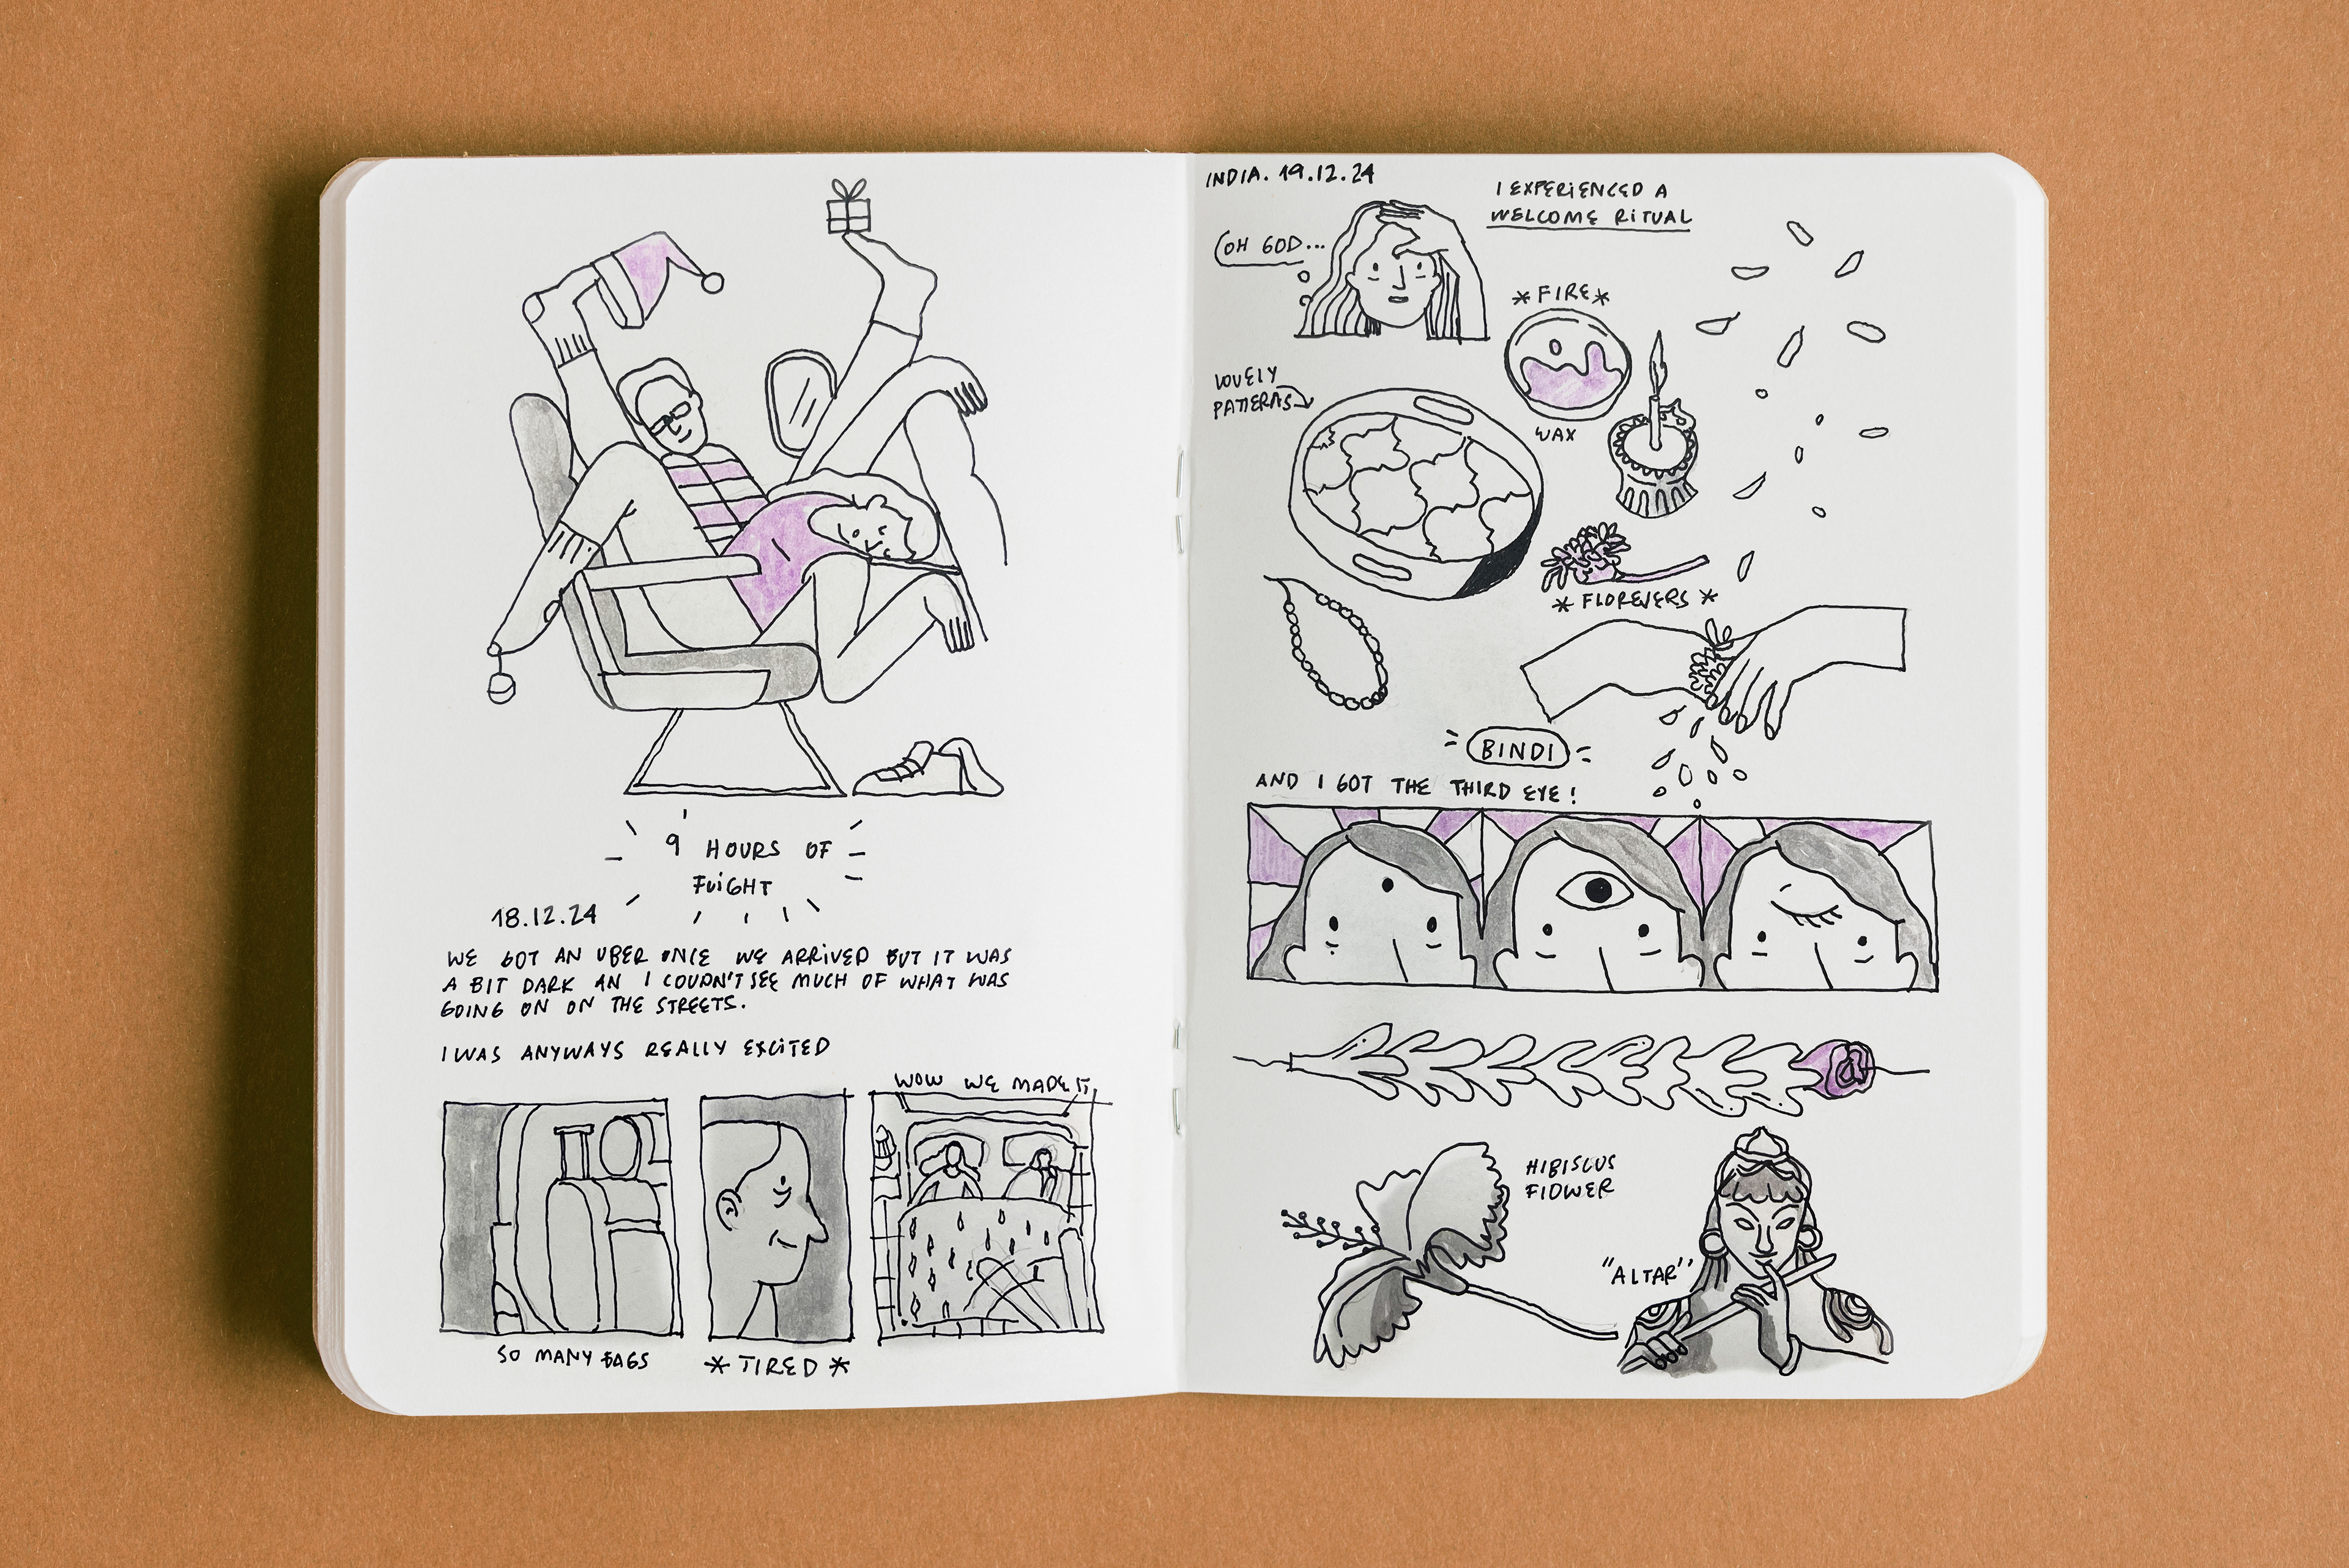 9 HOURS OF
FLIGHT
18.12.24
WE GOT AN UBER ONCE WE ARRIVED BUT IT WAS
A BIT DARK AN I COUDN'T SEE MUCH OF WHAT WAS
GOING ON ON THE STREETS.
I WAS ANYWAYS REALLY EXCITED
WOW WE MADE IT
SO MANY BAGS
* TIRED *
INDIA. 19.12.24
I EXPERIENCED A
WELCOME RITUAL
OH GOD...
*FIRE*
LOVELY
PATTERNS
WAX
* FLOREVERS *
BINDI
AND I GOT THE THIRD EYE!
HIBISCUS
FLOWER
"ALTAR"